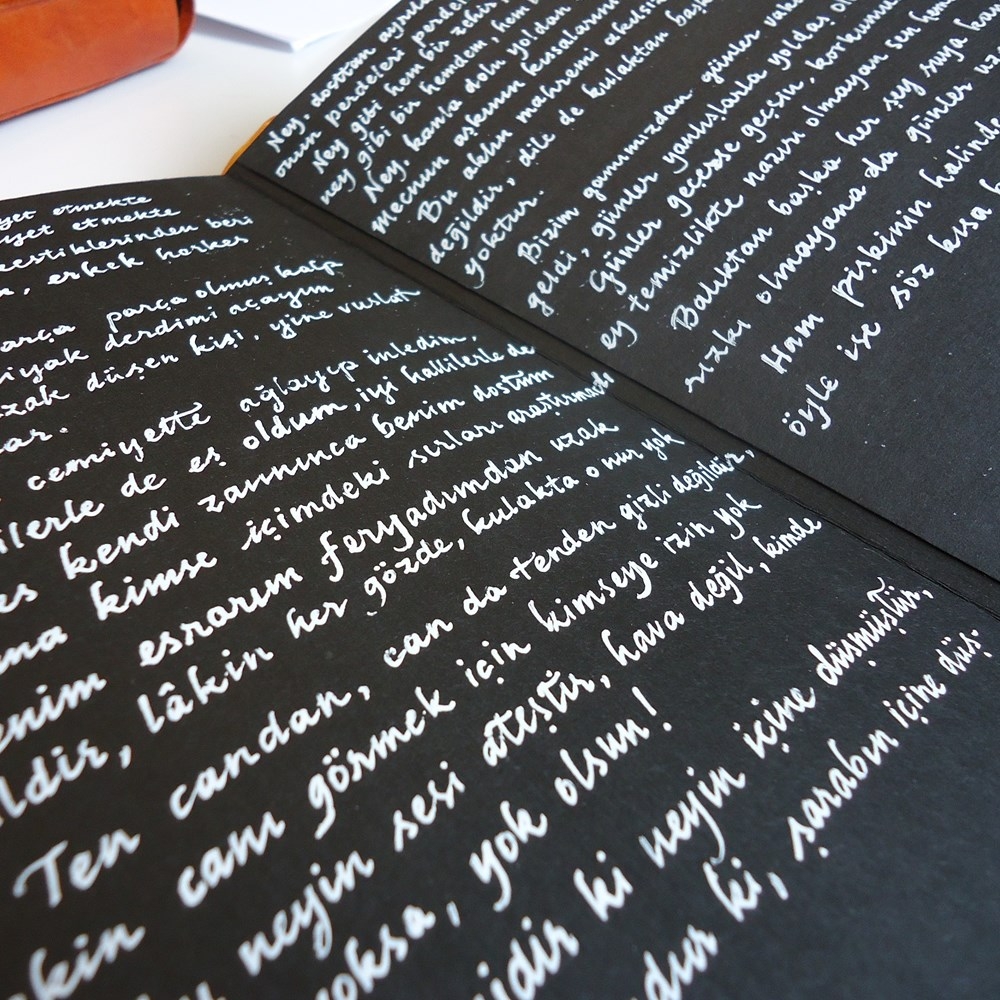 yet etmekte
yet etmekte
kestiklerinden beri
erkek herkes
parça parça olmuş kalp
derdimi açayım
düşen kişi, yine vuslat
cemiyette ağlayıp inledim,
de eş oldum, iyi hallilerle de
kendi zannınca benim dostum
kimse içimdeki sırları araştırmadı
esrarım feryadımdan uzak
ldir, lâkin her gözde, kulakta o nur yok
Ten candan, can da tenden gizli değildir,
canı görmek için kimseye izin yok
neyin sesi ateştir, hava değil, kimde
yoksa, yok olsun!
ki neyin içine düşmüştür,
ki, şarabın içine düş-
Ney, dosttan ayrı
onun perdeleri perde
Ney gibi hem bir zehir
ney gibi bir hemdem, hem
Ney, kanla dolu yoldan
mecnun aşkının kıssalarını
Bu aklın mahremi akılsız
değildir, dile de kulaktan başka
yoktur.
Bizim gamımızdan günler vakit
geldi, günler yanışlarla yoldaş ol
Günler geçerse geçsin, korkumuz
ey temizlikte naziri olmayan sen hem
Balıktan başka her şey suya kan
rızkı olmayana da günler uza
Ham pişkinin halinde
öyle ise söz kısa